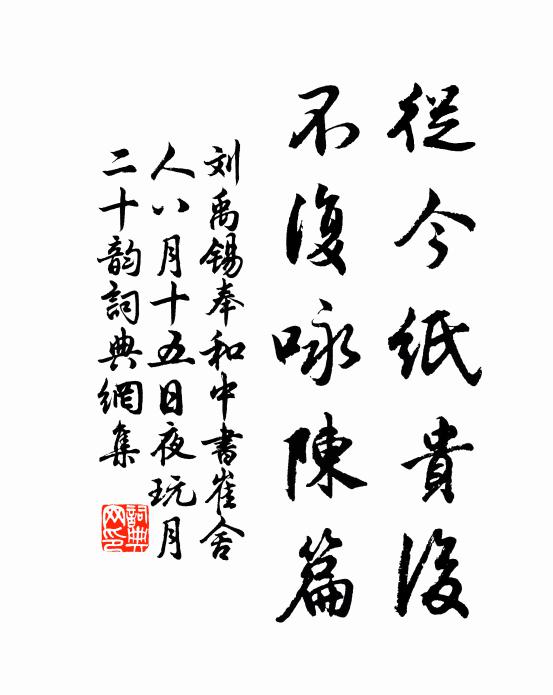 從今紙貴後
不復咏陳篇
刘禹錫奉和中書崔舍
人八月十五日夜玩月
二十韵詞典網集
詞典
网印